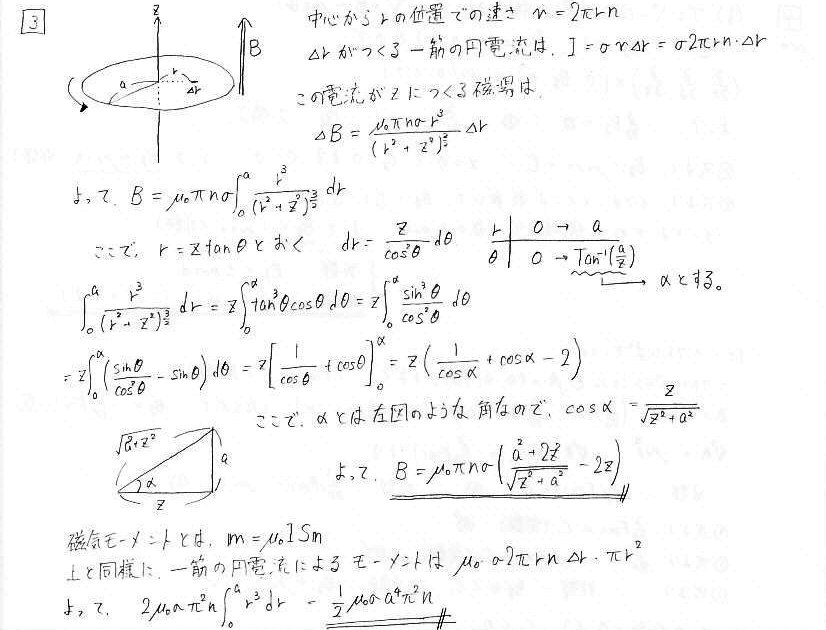 3
z
B
a
r
Δr
中心からrの位置での速さ v = 2πrn
Δrがつくる一筋の円電流は、I = σvΔr = σ2πrn・Δr
この電流がzにつくる磁場は、
ΔB = μ₀πnσr³/(r² + z²)^(3/2) Δr
よって、B = μ₀πnσ∫₀^a r³/(r² + z²)^(3/2) dr
ここで、r = z tanθ とおく dr = z/cos²θ dθ
r | 0 → a
θ | 0 → Tan⁻¹(a/z)
→ αとする。
∫₀^a r³/(r² + z²)^(3/2) dr = z∫₀^α tan³θcosθ dθ = z∫₀^α sin³θ/cos²θ dθ
= z∫₀^α (sinθ/cos²θ - sinθ) dθ = z[1/cosθ + cosθ]₀^α = z(1/cosα + cosα - 2)
ここで、αとは左図のような角なので、cosα = z/√(z² + a²)
√(a²+z²)
a
α
z
よって、B = μ₀πnσ((a² + 2z²)/√(z² + a²) - 2z)
磁気モーメントとは、m = μ₀ISm
上と同様に、一筋の円電流によるモーメントは μ₀・σ2πrnΔr・πr²
よって、2μ₀σπ²n∫₀^a r³dr = 1/2 μ₀σa⁴π²n